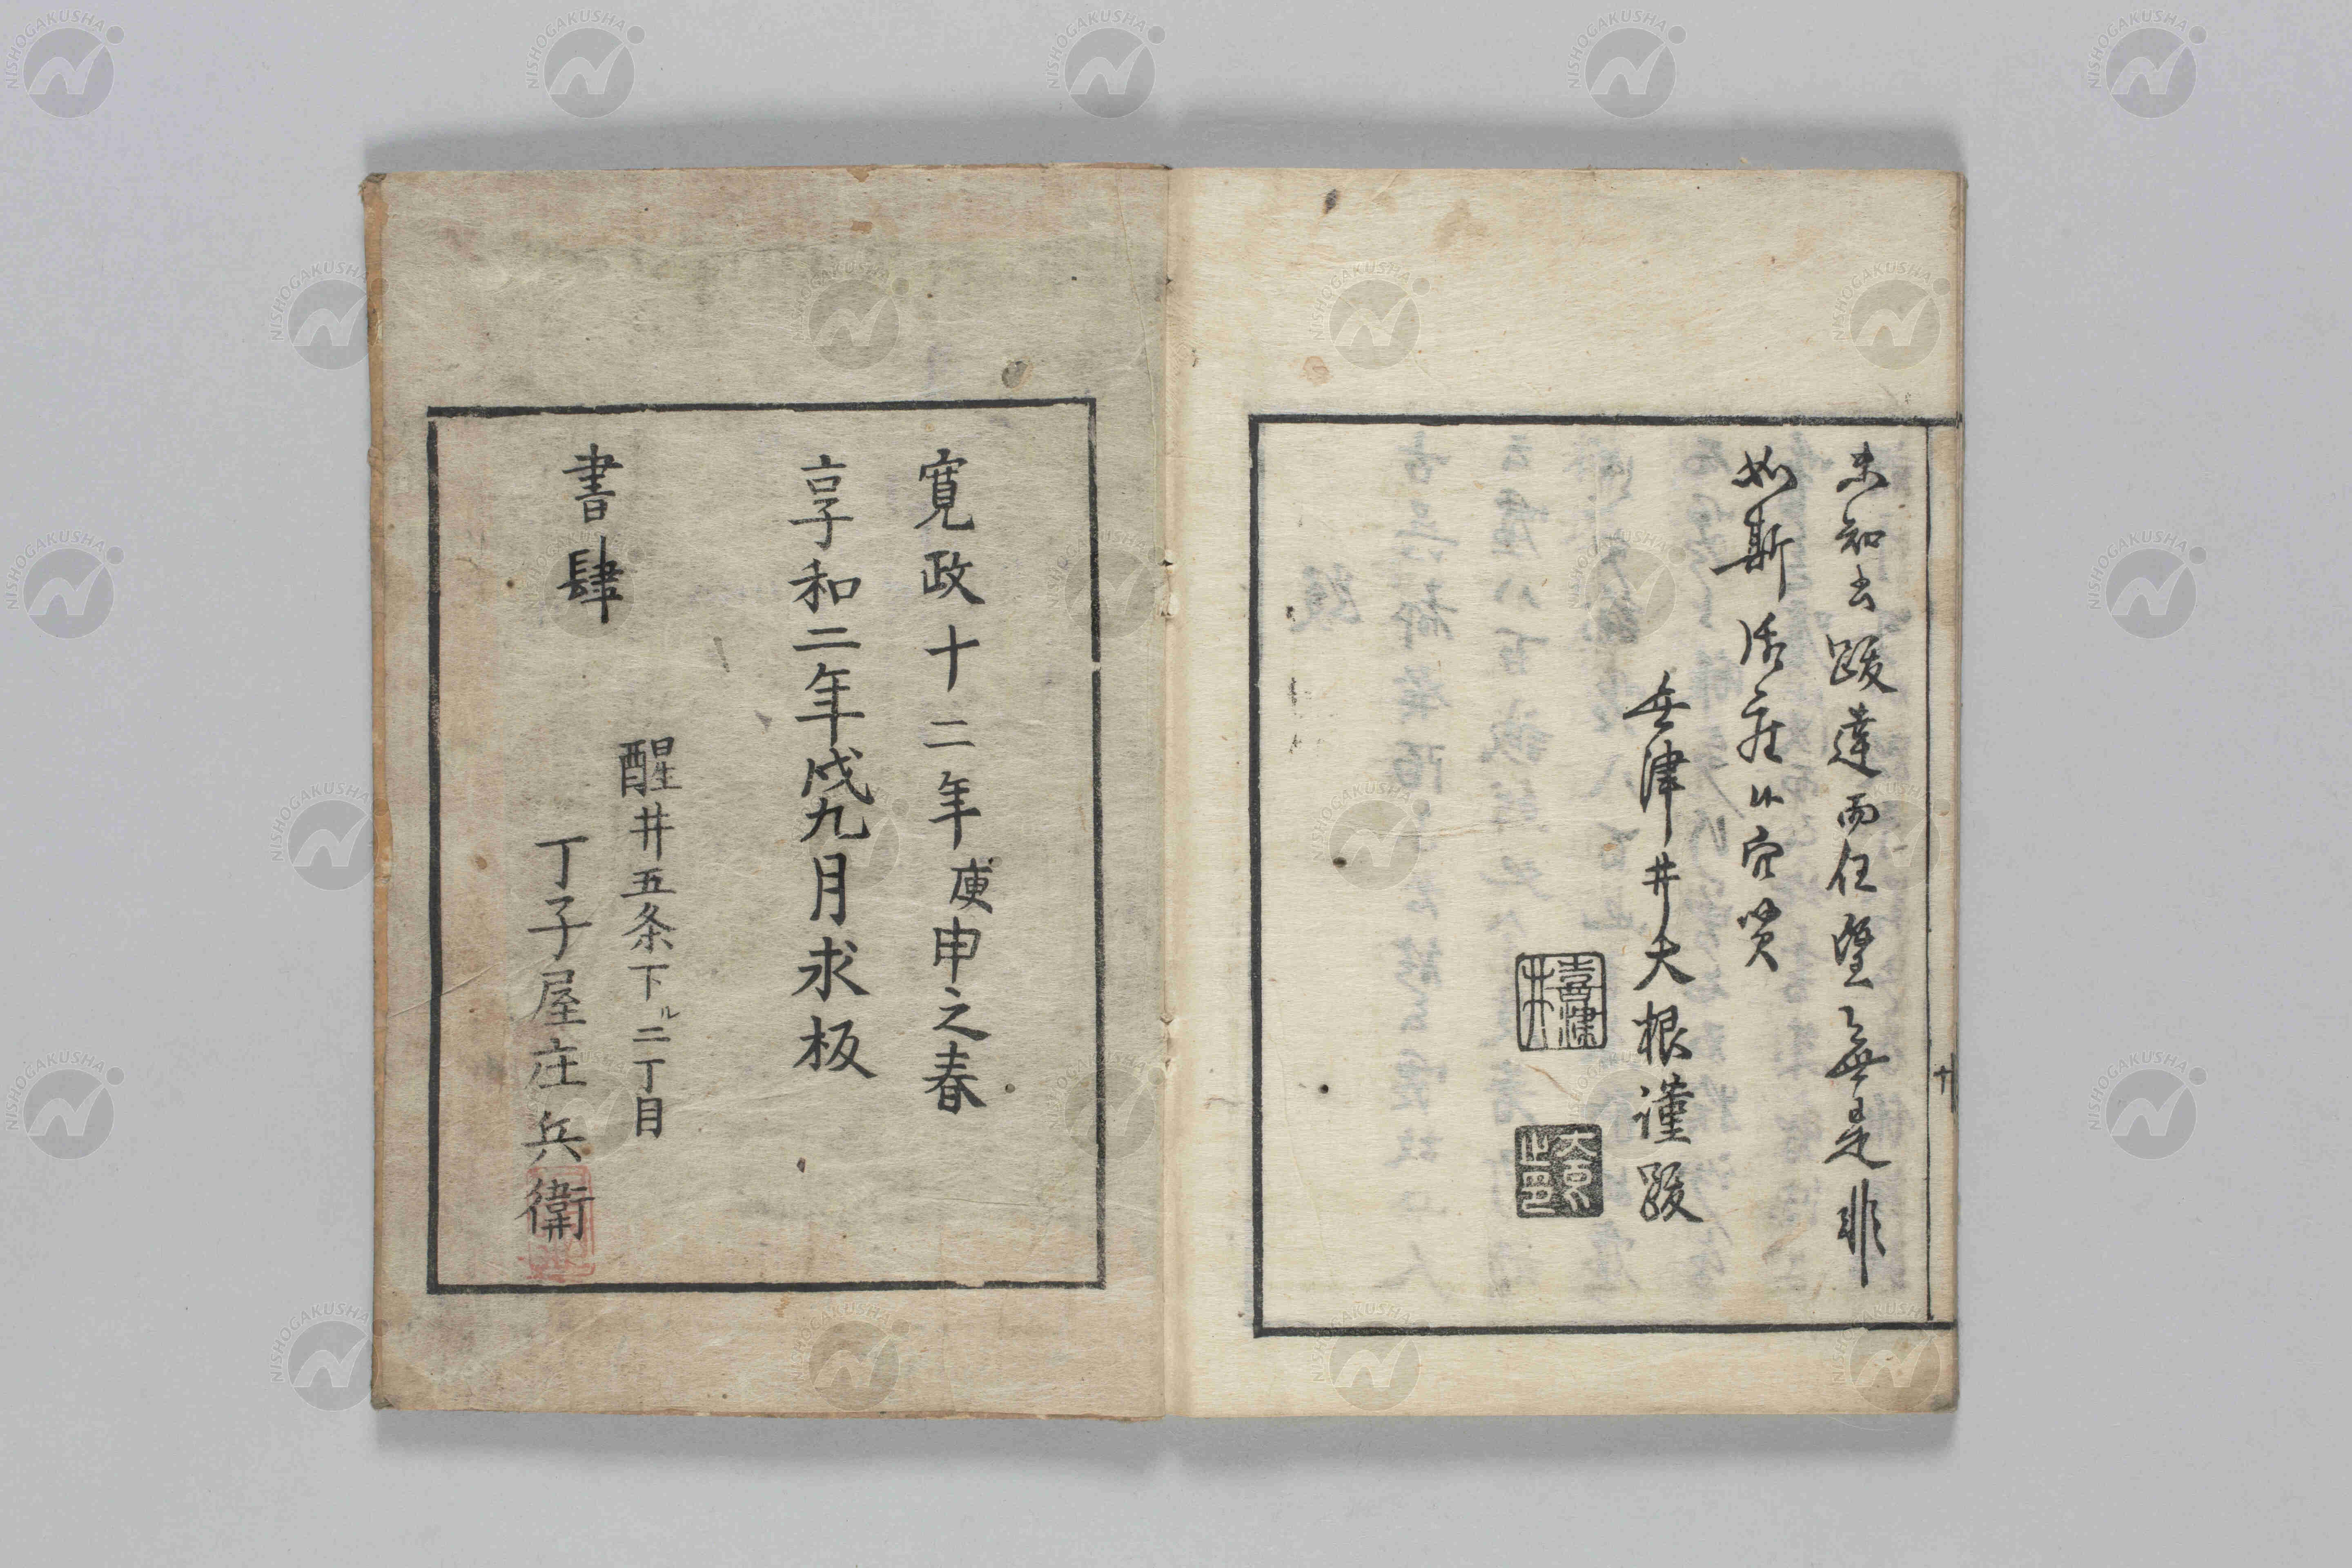 未知去跋達而任墮無是非
如斯活
喜津井大根謹跋
喜津井
大根之印
十
寛政十二年庚申之春
享和二年戌九月求板
書肆
醒井五条下ル二丁目
丁子屋庄兵衛
NISHOGAKUSHA